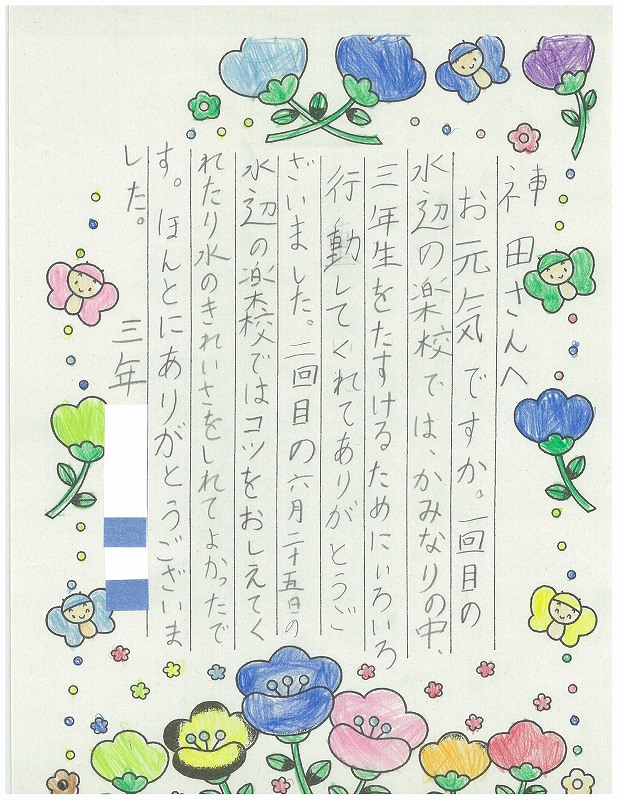 神田さんへ
お元気ですか。一回目の
水辺の楽校では、かみなりの中、
三年生をたすけるためにいろいろ
行動してくれてありがとうご
ざいました。二回目の六月二十五日の
水辺の楽校ではコツをおしえてく
れたり水のきれいさをしれてよかったで
す。ほんとにありがとうございま
した。
三年